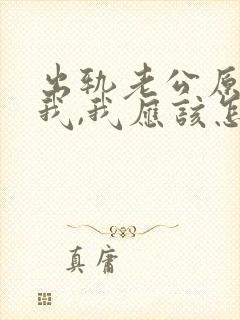 出轨老公原
我,我应该怎
真庸